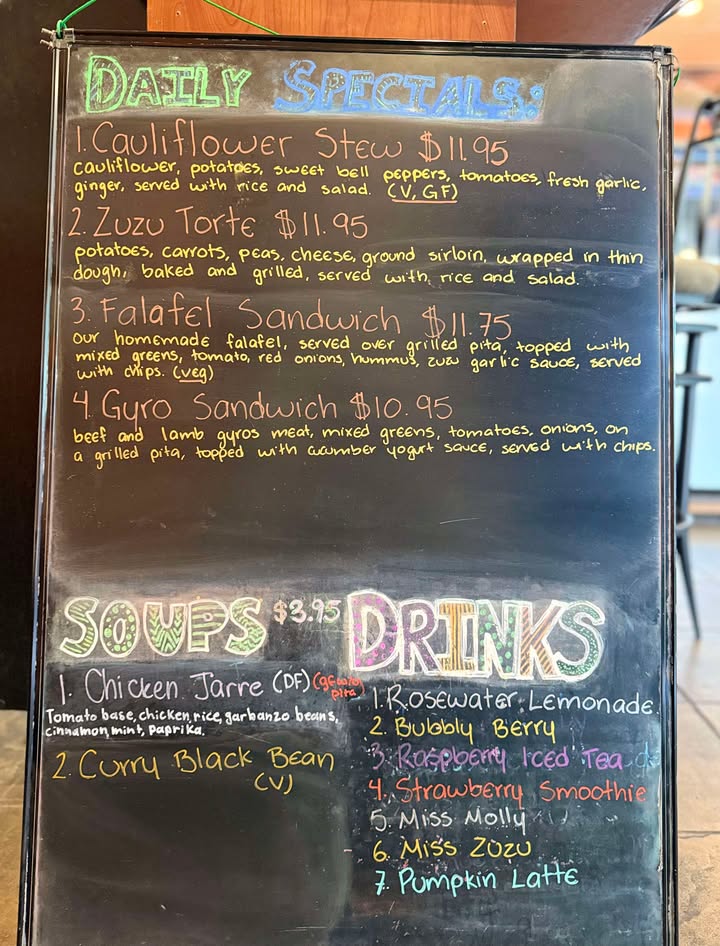 DAILY SPECIALS:
1. Cauliflower Stew $11.95
cauliflower, potatoes, sweet bell peppers, tomatoes, fresh garlic,
ginger, served with rice and salad. (V, GF)
2. Zuzu Torte $11.95
potatoes, carrots, peas, cheese, ground sirloin, wrapped in thin
dough, baked and grilled, served with rice and salad.
3. Falafel Sandwich $11.75
our homemade falafel, served over grilled pita, topped with
mixed greens, tomato, red onions, hummus, zuzu garlic sauce, served
with chips. (veg)
4. Gyro Sandwich $10.95
beef and lamb gyros meat, mixed greens, tomatoes, onions, on
a grilled pita, topped with cucumber yogurt sauce, served with chips.
SOUPS $3.95
1. Chicken Jarre (DF)
pita)
Tomato base, chicken, rice, garbanzo beans,
cinnamon, mint, paprika.
2. Curry Black Bean
(V)
DRINKS
1. Rosewater Lemonade
2. Bubbly Berry
3. Raspberry Iced Tea
4. Strawberry Smoothie
5. Miss Molly
6. Miss Zuzu
7. Pumpkin Latte